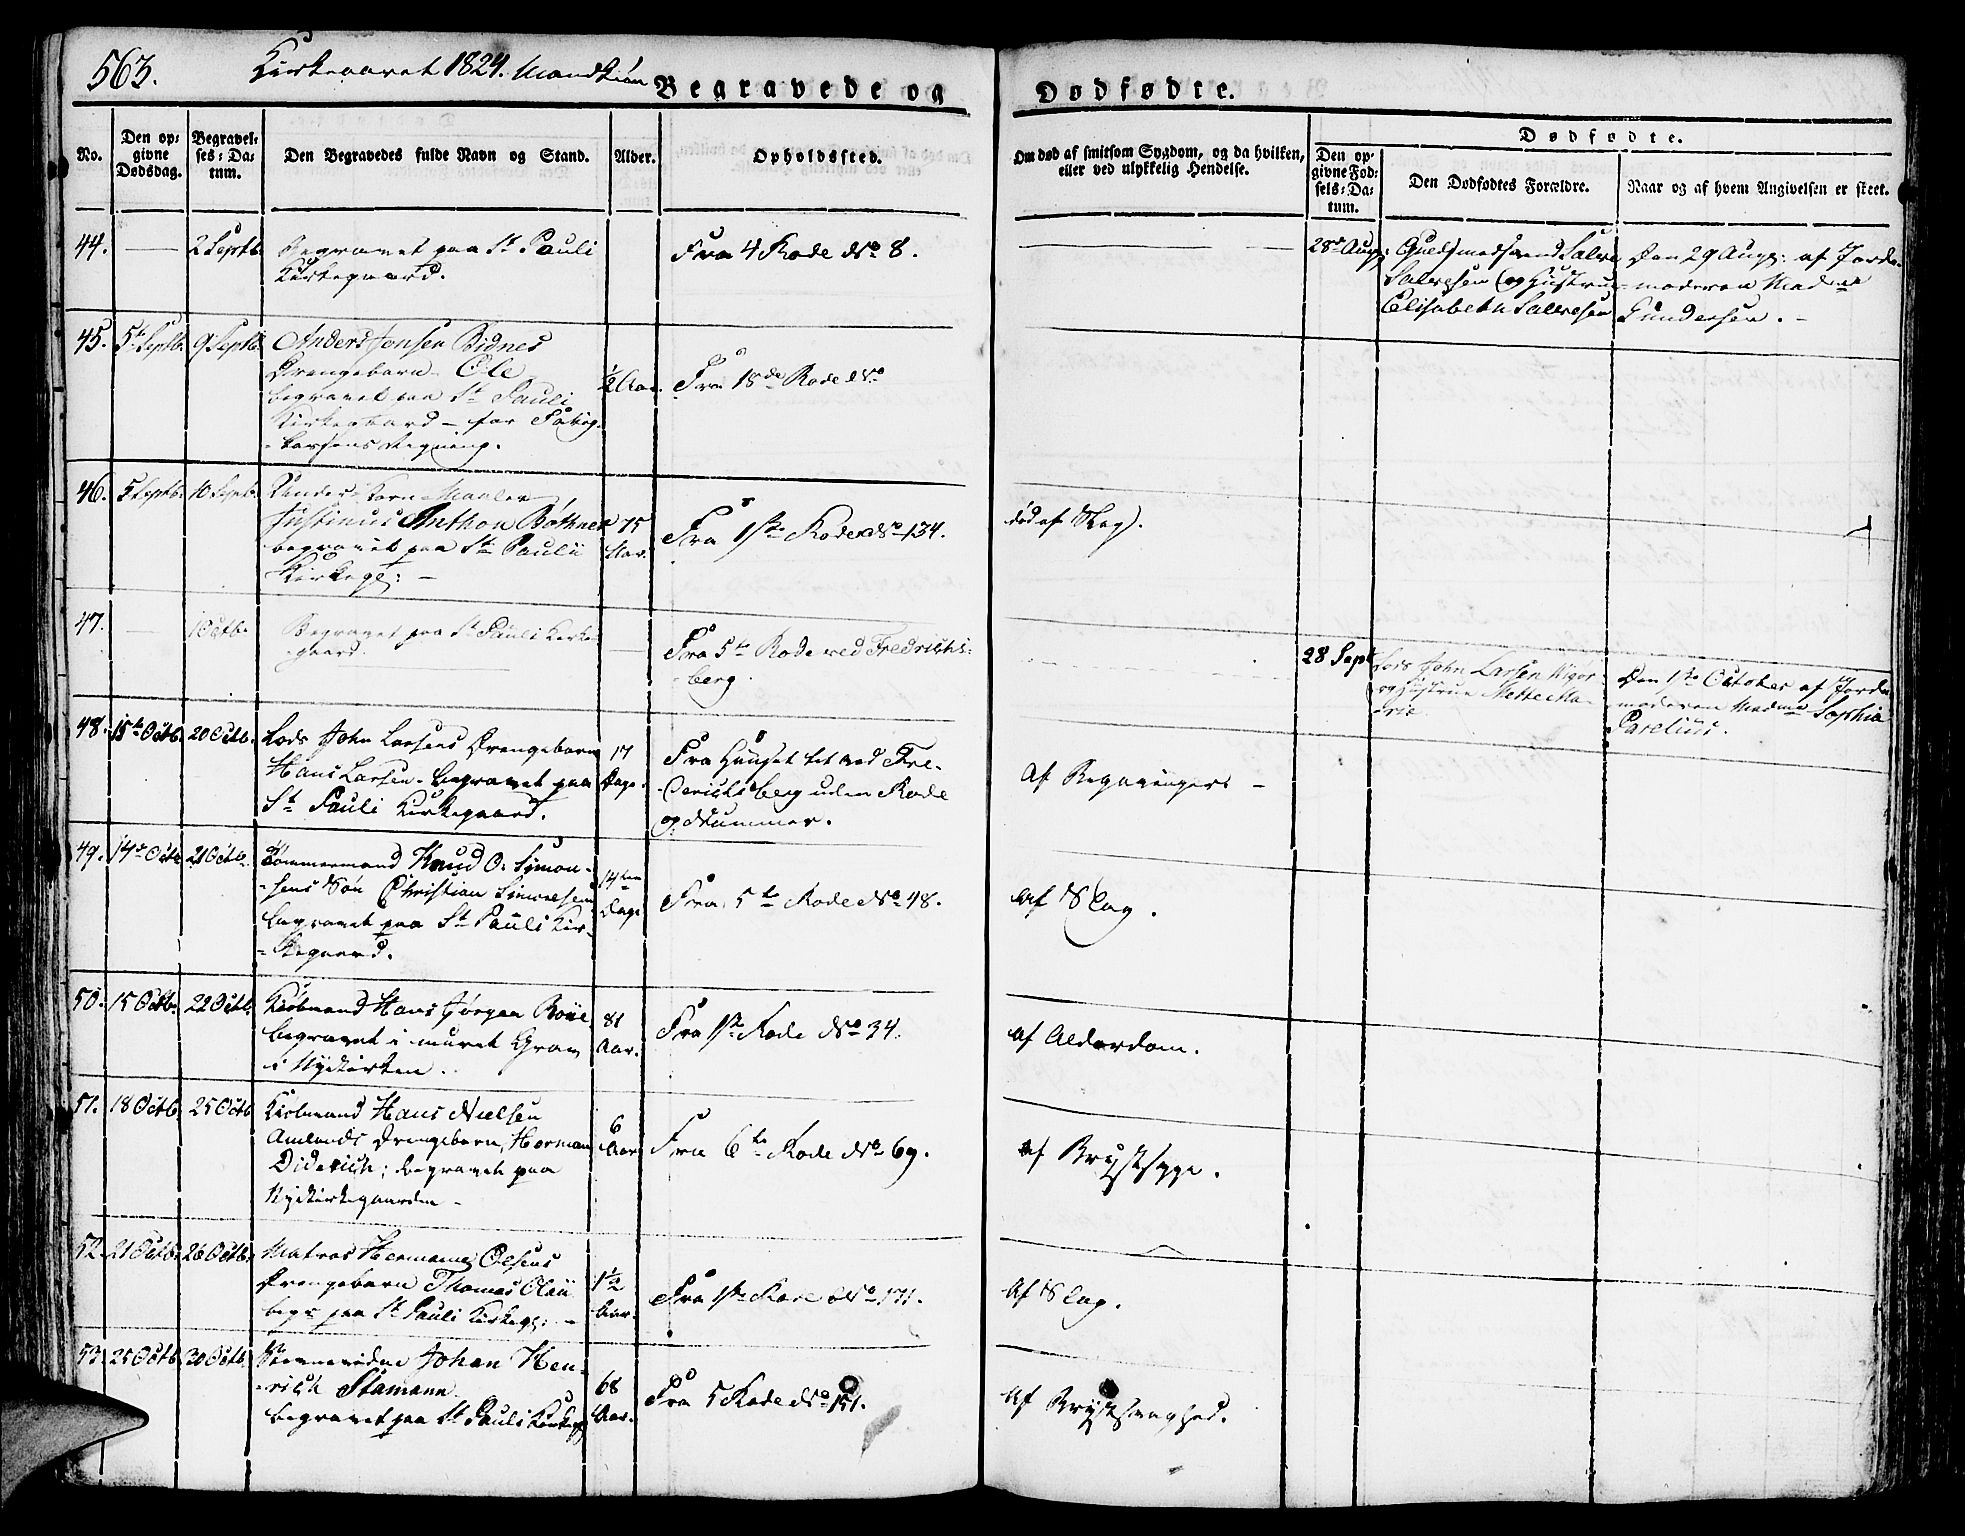 563.
Kirkeaaret 1824. Mandkiøn
Begravede og
Dødfødte.
No.
Den op-
givne
Dødsdag.
Begravel-
ses-Da-
tum.
Den Begravedes fulde Navn og Stand.
Alder.
Opholdssted.
Om død af smitsom Sygdom, og da hvilken,
eller ved ulykkelig Hendelse.
Den op-
givne Fød-
sels-Da-
tum.
Dødfødte.
Den Dødfødtes Forældre.
Naar og af hvem Angivelsen er skeet.
44.
2 Septb.
Begravet paa St Pauli
Kirkegaard.
Fra 4 Rode No 8.
28de Aug:
Guldsmedsvend Salve
Salvesen og Hustru
Elisabeth Salvesen
Den 29 Aug: af Jorde-
moderen Madme
Gundersen.
45.
5te Septb.
9 Septb.
Anders Jensen Bidnes
Drengebarn Ole
begravet paa St Pauli
Kirkegaard - for Fattig-
Kassens Regning.
1/2 Aar.
Fra 18de Rode No
46.
5 Septb.
10 Septb.
Justinus Anthon Bøthner
begravet paa St Pauli
Kirkeg: -
75
Aar.
Fra 1ste Rode No 134.
død af Slag.
47.
1 Octb.
Begravet paa St Pauli Kirke-
gaard.
Fra 5te Rode ved Fredrichs-
berg.
28 Sept
Lods John Larsen
og Hustrue Mette Ma-
ria
Den 1ste October af Jorde
moderen Madme Sophia
Parelius.
48.
15de Octb.
20 Octb.
Lods John Larsens Drengebarn
Hans Larsen - begravet paa
St Pauli Kirkegaard.
17
Dage.
Fra Huuset tet ved Fre-
derichsberg uden Rode
og Nummer.
Af
49.
14de Octb
21 Octb.
Tømmermand Knud O: Symon-
sens Søn Christian Simonsen
begravet paa St Pauli Kir-
kegaard.
14ten
Dage
Fra 5te Rode No 48.
Af Slag.
50.
15 Octb.
22 Octb.
Kiøbmand Hans Jørgen Boue
begravet i muret Grav
i Nyekirken.
81
Aar.
Fra 1ste Rode No 34.
af Alderdom.
51.
18 Octb.
25 Octb
Kiøbmand Hans Nielsen
Amlands Drengebarn, Herman
Diderich; begravet paa
Nyekirkegaarden -
6
Aar
Fra 6te Rode No 69.
af Brystsyge.
52.
21 Octb.
26 Octb.
Matros Hermann Olsens
Drengebarn Thomas Olaii
begr paa St Pauli Kirkeg: -
1 1/2
Aar.
Fra 1ste Rode No 171.
Af Slag.
53.
25 Octb.
30 Octb.
Johan Hen-
rich Stamann
begravet paa St Pauli Kirkeg
68
Aar.
Fra 5 Rode No 151.
Af Brystsvaghed.